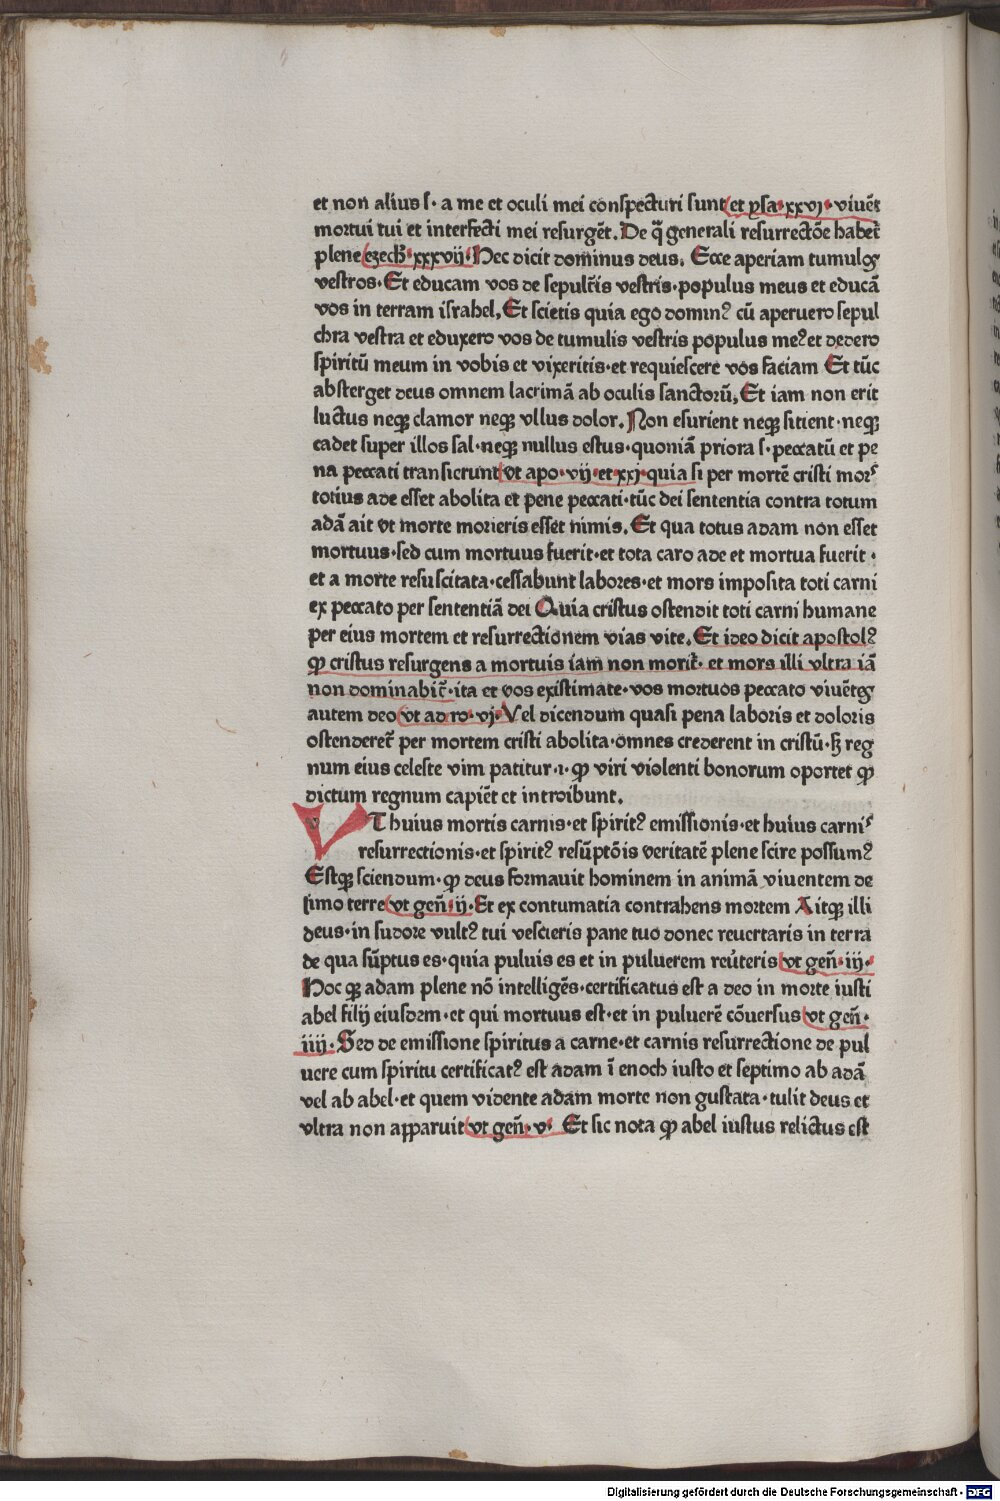 et non alius s· a me et oculi mei conspecturi sunt et ysa·xxvj·viuẽt
mortui tui et interfecti mei resurgẽt. De q̃ generali resurrectõe habet᷑
plene ezech̃·xxxvij·Hec dicit dominus deus. Ecce aperiam tumulos
vestros·Et educam vos de sepulcr̃is vestris·populus meus et educã
vos in terram israhel, Et scietis quia ego domin⁹ cũ aperuero sepul
chra vestra et eduxero vos de tumulis vestris populus me⁹ et dedero
spiritũ meum in vobis et vixeritis·et requiescere vos faciam Et tũc
absterget deus omnem lacrimã ab oculis sanctorũ, Et iam non erit
luctus neqꝫ clamor neqꝫ vllus dolor. Non esurient neqꝫ sitient·neqꝫ
cadet super illos sal·neqꝫ nullus estus·quoniã priora s·peccatũ et pe
na peccati transierunt vt apo·vij·et·xxj·quia si per mortẽ cristi mors
totius ade esset abolita et pene peccati·tũc dei sententia contra totum
adã ait vt morte morieris esset nimis. Et qua totus adam non esset
mortuus·sed cum mortuus fuerit·et tota caro ade et mortua fuerit·
et a morte resuscitata·cessabunt labores·et mors imposita toti carni
ex peccato per sententiã dei Quia cristus ostendit toti carni humane
per eius mortem et resurrectionem vias vite. Et ideo dicit apostol⁹
ꝙ cristus resurgens a mortuis iam non morit᷑· et mors illi vltra iã
non dominabit᷑·ita et vos existimate·vos mortuos peccato viuẽtes
autem deo vt ad ro·vj·Vel dicendum quasi pena laboris et doloris
ostenderet᷑ per mortem cristi abolita·omnes crederent in cristũ·sꝫ reg
num eius celeste vim patitur·ı·ꝙ viri violenti bonorum oportet ꝙ
dictum regnum capiẽt et introibunt.
VT huius mortis carnis·et spirit⁹ emissionis·et huius carnis
resurrectionis·et spirit⁹ resũptõis veritatẽ plene scire possum⁹
Estqꝫ sciendum·ꝙ deus formauit hominem in animã viuentem de
simo terre vt geñ·ij·Et ex contumatia contrahens mortem Aitqꝫ illi
deus·in sudore vult⁹ tui vescieris pane tuo donec reuertaris in terra
de qua sũptus es·quia puluis es et in puluerem reũteris vt geñ·iij·
Hoc qꝫ adam plene nõ intelligẽs·certificatus est a deo in morte iusti
abel filij eiusdem·et qui mortuus est·et in puluerẽ cõuersus vt geñ·
iiij·Sed de emissione spiritus a carne·et carnis resurrectione de pul
uere cum spiritu certificat⁹ est adam ĩ enoch iusto et septimo ab adã
vel ab abel·et quem vidente adam morte non gustata·tulit deus et
vltra non apparuit vt geñ·v· Et sic nota ꝙ abel iustus relictus est
Digitalisierung gefördert durch die Deutsche Forschungsgemeinschaft - DFG